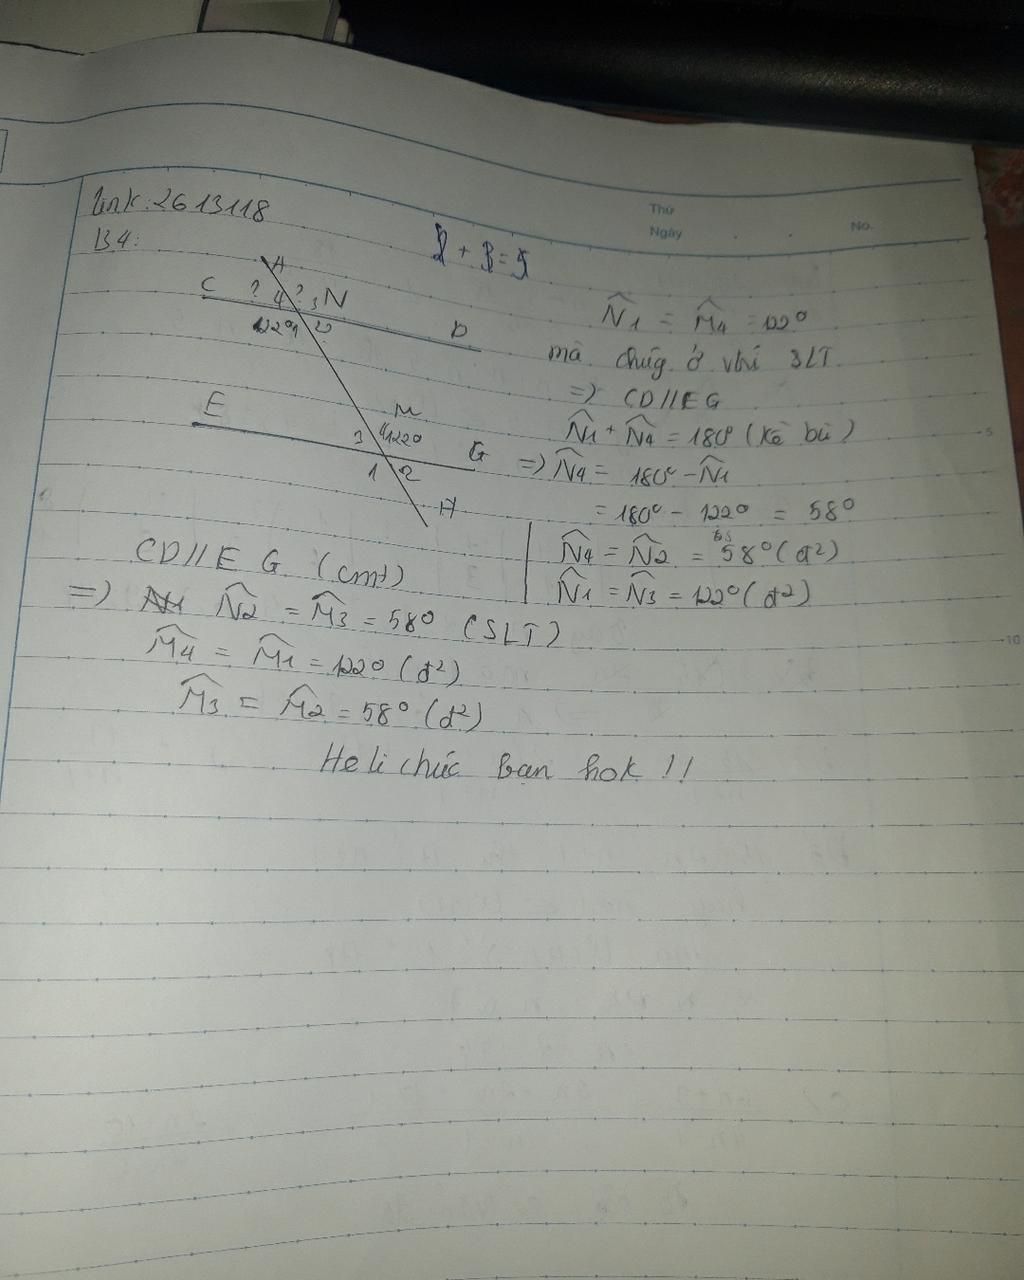 link: 2613118
Thứ
Ngày
No.
B4:
2 + 3 = 5
A
C ? 4 ? 3 N
122° 1 2 D
E M
3 4 122° G
1 2
A
N̂1 = M̂4 = 122°
mà chúg ở vtrí SLT
=> CD//EG
N̂1 + N̂4 = 180° (kề bù)
5
=> N̂4 = 180° - N̂1
= 180° - 122° = 58°
N̂4 = N̂2 = 58° (đ²)
N̂1 = N̂3 = 122° (đ²)
CD//EG (cmt)
=> N̂2 = M̂3 = 58° (SLT)
10
M̂4 = M̂1 = 122° (đ²)
M̂3 = M̂2 = 58° (đ²)
Heli chúc bạn hok !!